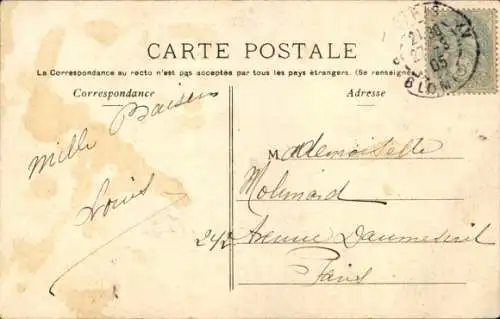 CARTE POSTALE
La Correspondance au recto n'est pas acceptée par tous les pays étrangers. (Se renseigne
Correspondance
Adresse
Mille Baisers
Louis
Mademoiselle
Molinard
242 Avenue Daumesnil
Paris
05